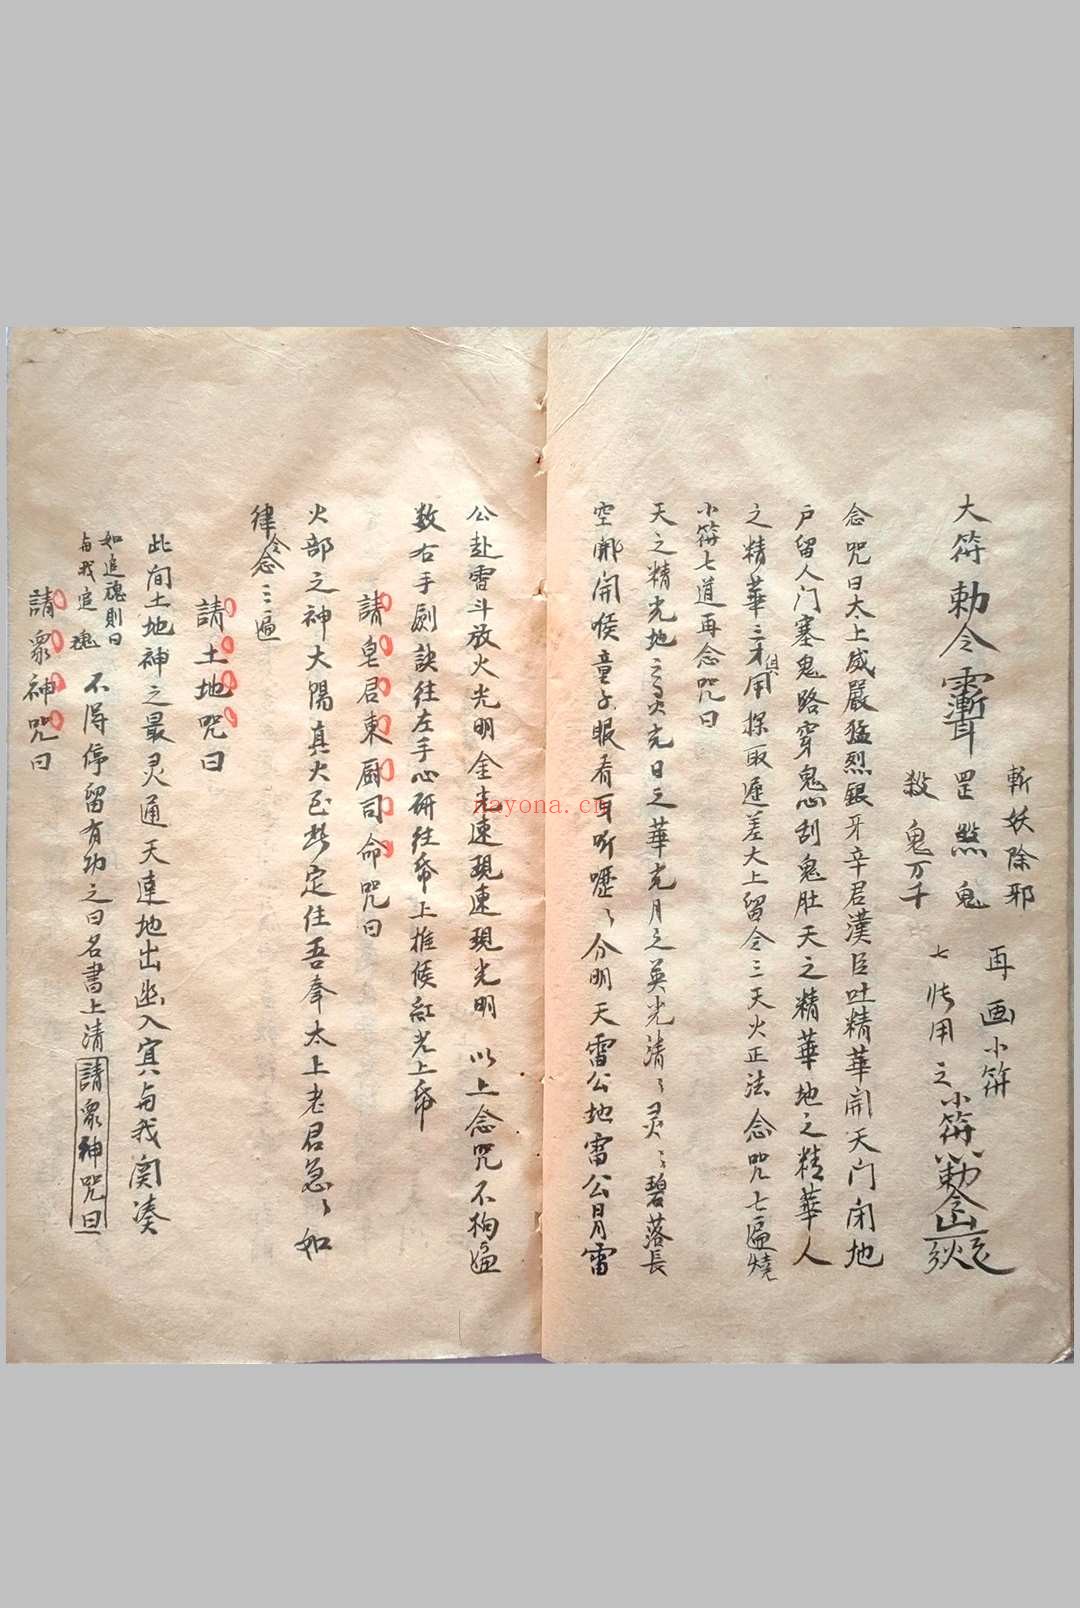 斬妖除邪
大符 勅令 罡煞鬼
殺鬼万千
再画小符
七张用之小符
念咒曰太上威嚴猛烈銀牙辛君漢臣吐精華開天门闭地
户留人门塞鬼路穿鬼心刮鬼肚天之精華地之精華人
之精華三才俱用採取遲差太上留令三天火正法念咒七遍燒
小符七道再念咒曰
天之精光地之灵光日之華光月之英光清々灵々碧落長
空開開候童子眼看耳听嚦々分明天雷公地雷公月雷
公赴雷斗放火光明金光速現速現光明 以上念咒不拘遍
数右手劍訣往左手心研往符上推候紅光上符
請皂君東厨司命咒曰
火部之神太陽真火至此定住吾奉太上老君急々如
律令念三遍
請土地咒曰
此间土地神之最灵通天達地出幽入冥与我関湊
如追魂則曰
与我追魂
不得停留有功之日名書上清 請衆神咒曰
請衆神咒曰
nayona.cn